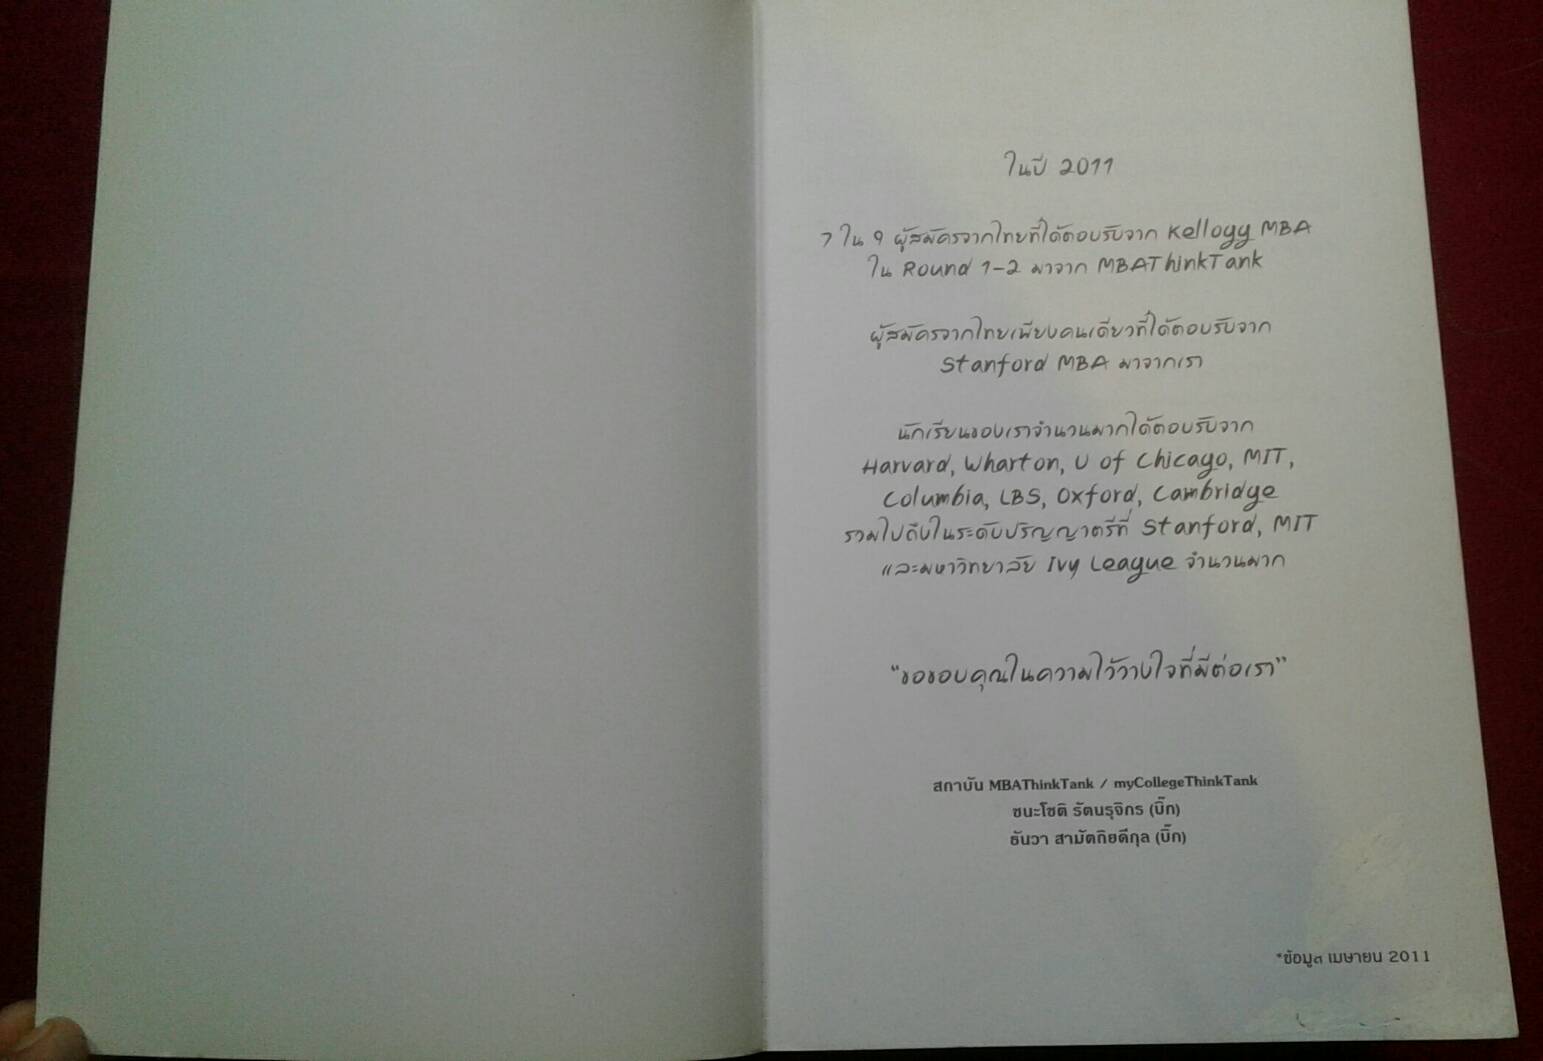 ในปี 2011
7 ใน 9 ผู้สมัครจากไทยที่ได้ตอบรับจาก Kellogg MBA
ใน Round 1-2 มาจาก MBAThinkTank
ผู้สมัครจากไทยเพียงคนเดียวที่ได้ตอบรับจาก
Stanford MBA มาจากเรา
นักเรียนของเราจำนวนมากได้ตอบรับจาก
Harvard, Wharton, U of Chicago, MIT,
Columbia, LBS, Oxford, Cambridge
รวมไปถึงในระดับปริญญาตรีที่ Stanford, MIT
และมหาวิทยาลัย Ivy League จำนวนมาก
"ขอขอบคุณในความไว้วางใจที่มีต่อเรา"
สถาบัน MBAThinkTank / myCollegeThinkTank
ชนะโชติ รัตนรุจิกร (บิ๊ก)
ธันวา สามัตถิยดีกุล (บิ๊ก)
*ข้อมูล เมษายน 2011